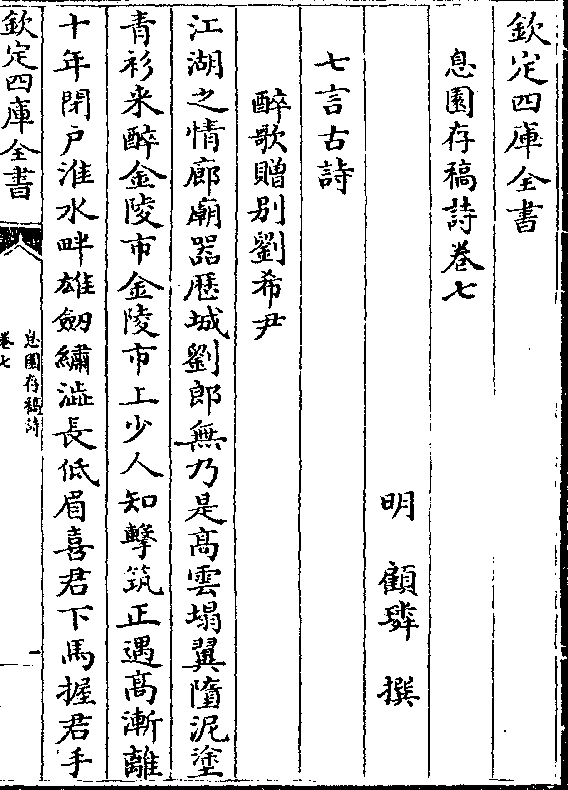 欽定四庫全書
息園存稿詩卷七
明　顧璘　撰
七言古詩
醉歌贈別劉希尹
江湖之情廊廟器歴城劉郎無乃是髙雲塌翼墮泥塗
青衫来醉金陵市金陵市上少人知擊筑正遇髙漸離
十年閉戸淮水畔雄劒繡澁長低眉喜君下馬握君手
欽定四庫全書
息園存稿詩
卷七
一